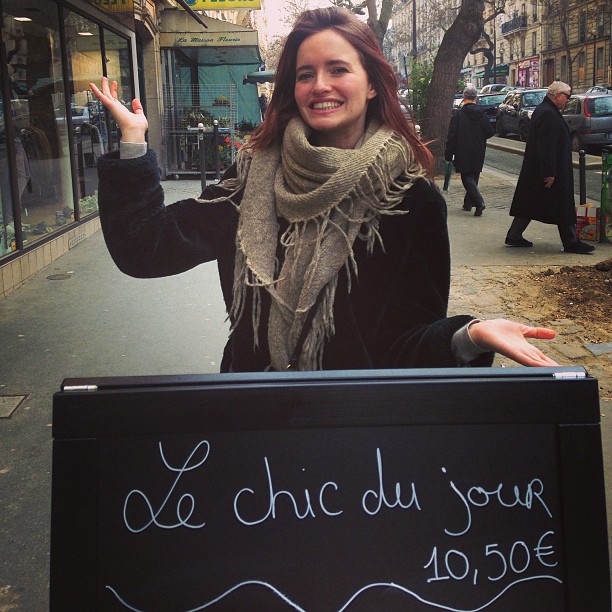 FLEURS
La Maison Fleurie
Le chic du jour
10,50€